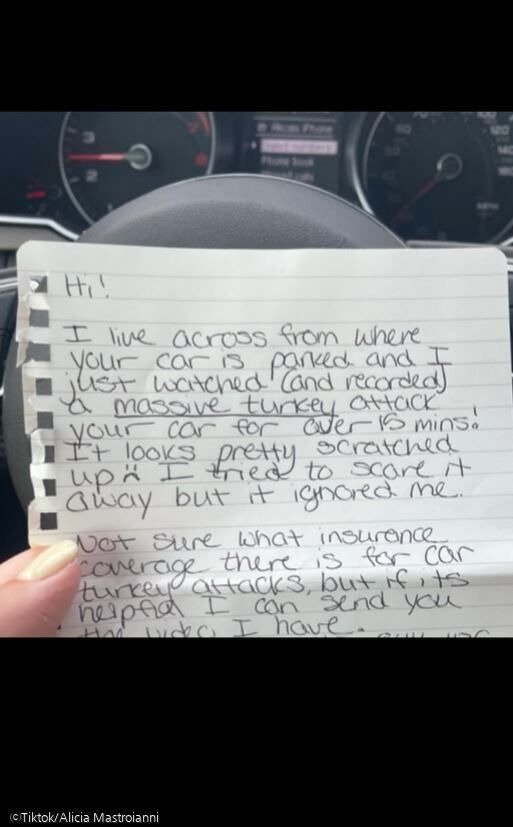 3
2
Phone book
120
Hi!
I live across from where
your car is parked and I
just watched (and recorded)
a massive turkey attack
your car for over 15 mins!
It looks pretty scratched
up :( I tried to scare it
away but it ignored me.
Not sure what insurance
coverage there is for car
turkey attacks, but if its
helpful I can send you
the video I have.
©Tiktok/Alicia Mastroianni